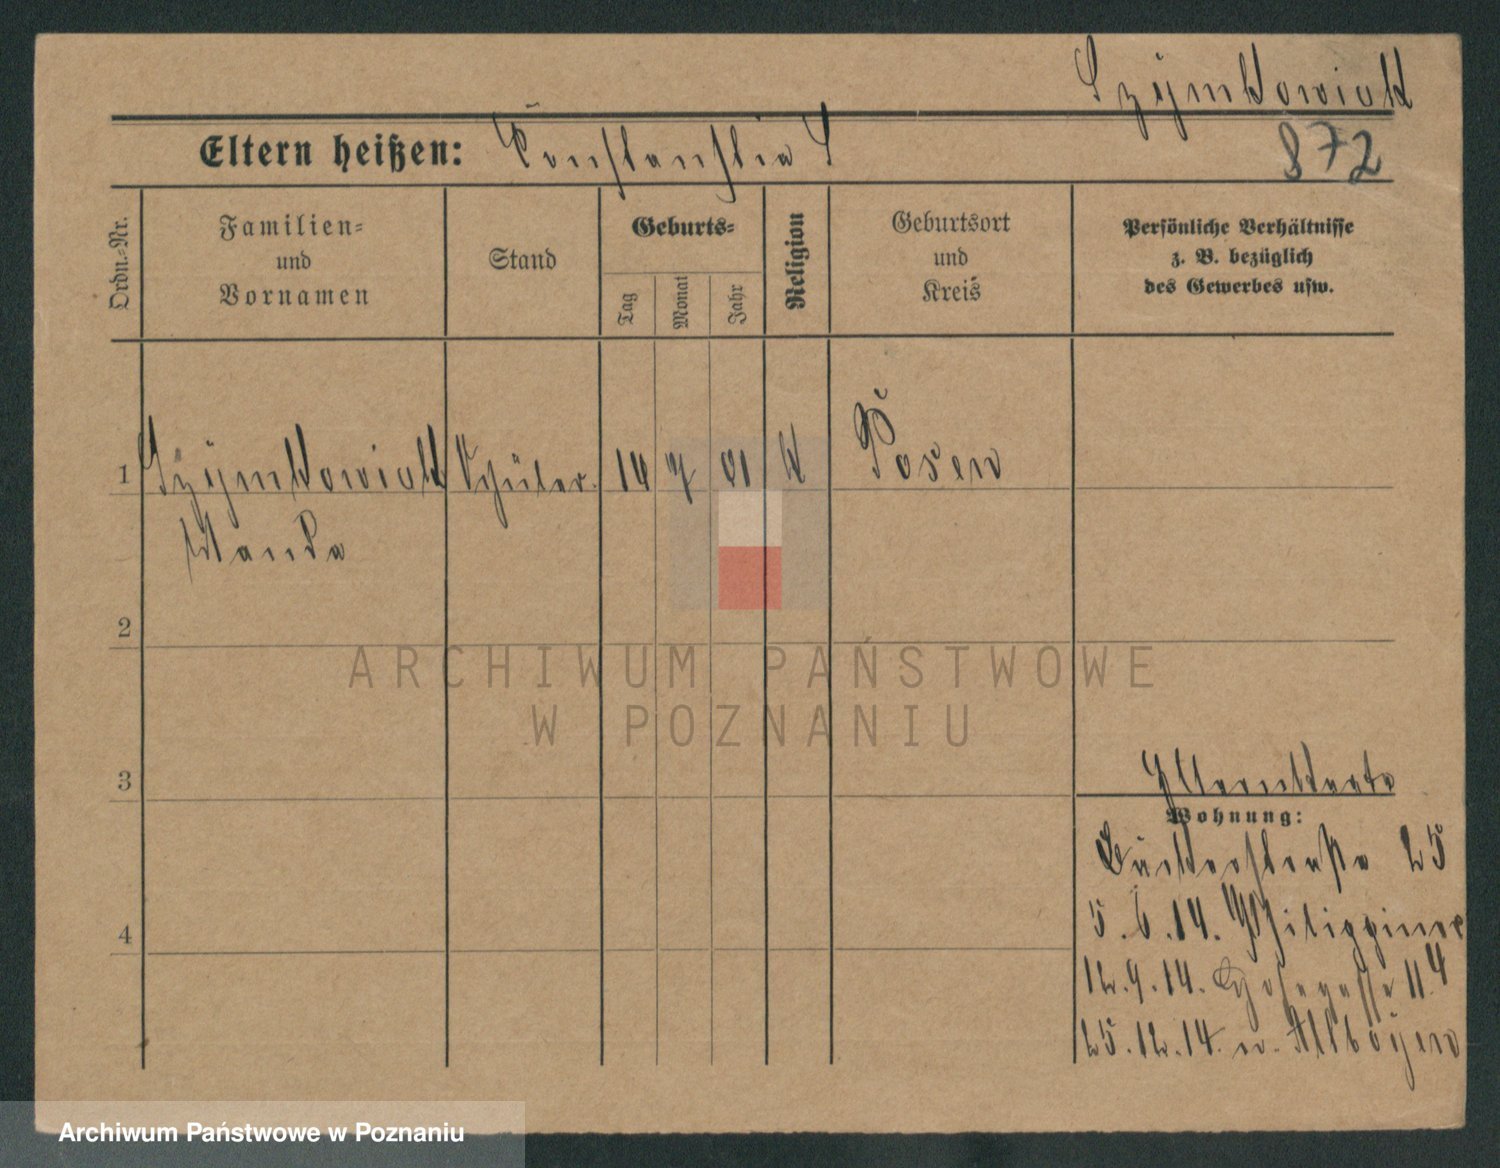 Szymkowiak
872
Eltern heißen: Constantia S
Ordn.=Nr.
Familien=
und
Vornamen
Stand
Geburts=
Tag
Monat
Jahr
Religion
Geburtsort
und
Kreis
Persönliche Verhältnisse
z. B. bezüglich
des Gewerbes usw.
1 Szymkowiak Schüler. 14 7 01 k Posen
Wanda
2
3
4
Wohnung:
Bäckerstraße 25
5.6.14. Philippine
12.9.14. 11.4
25.12.14. n.
ARCHIWUM PAŃSTWOWE
W POZNANIU
Archiwum Państwowe w Poznaniu